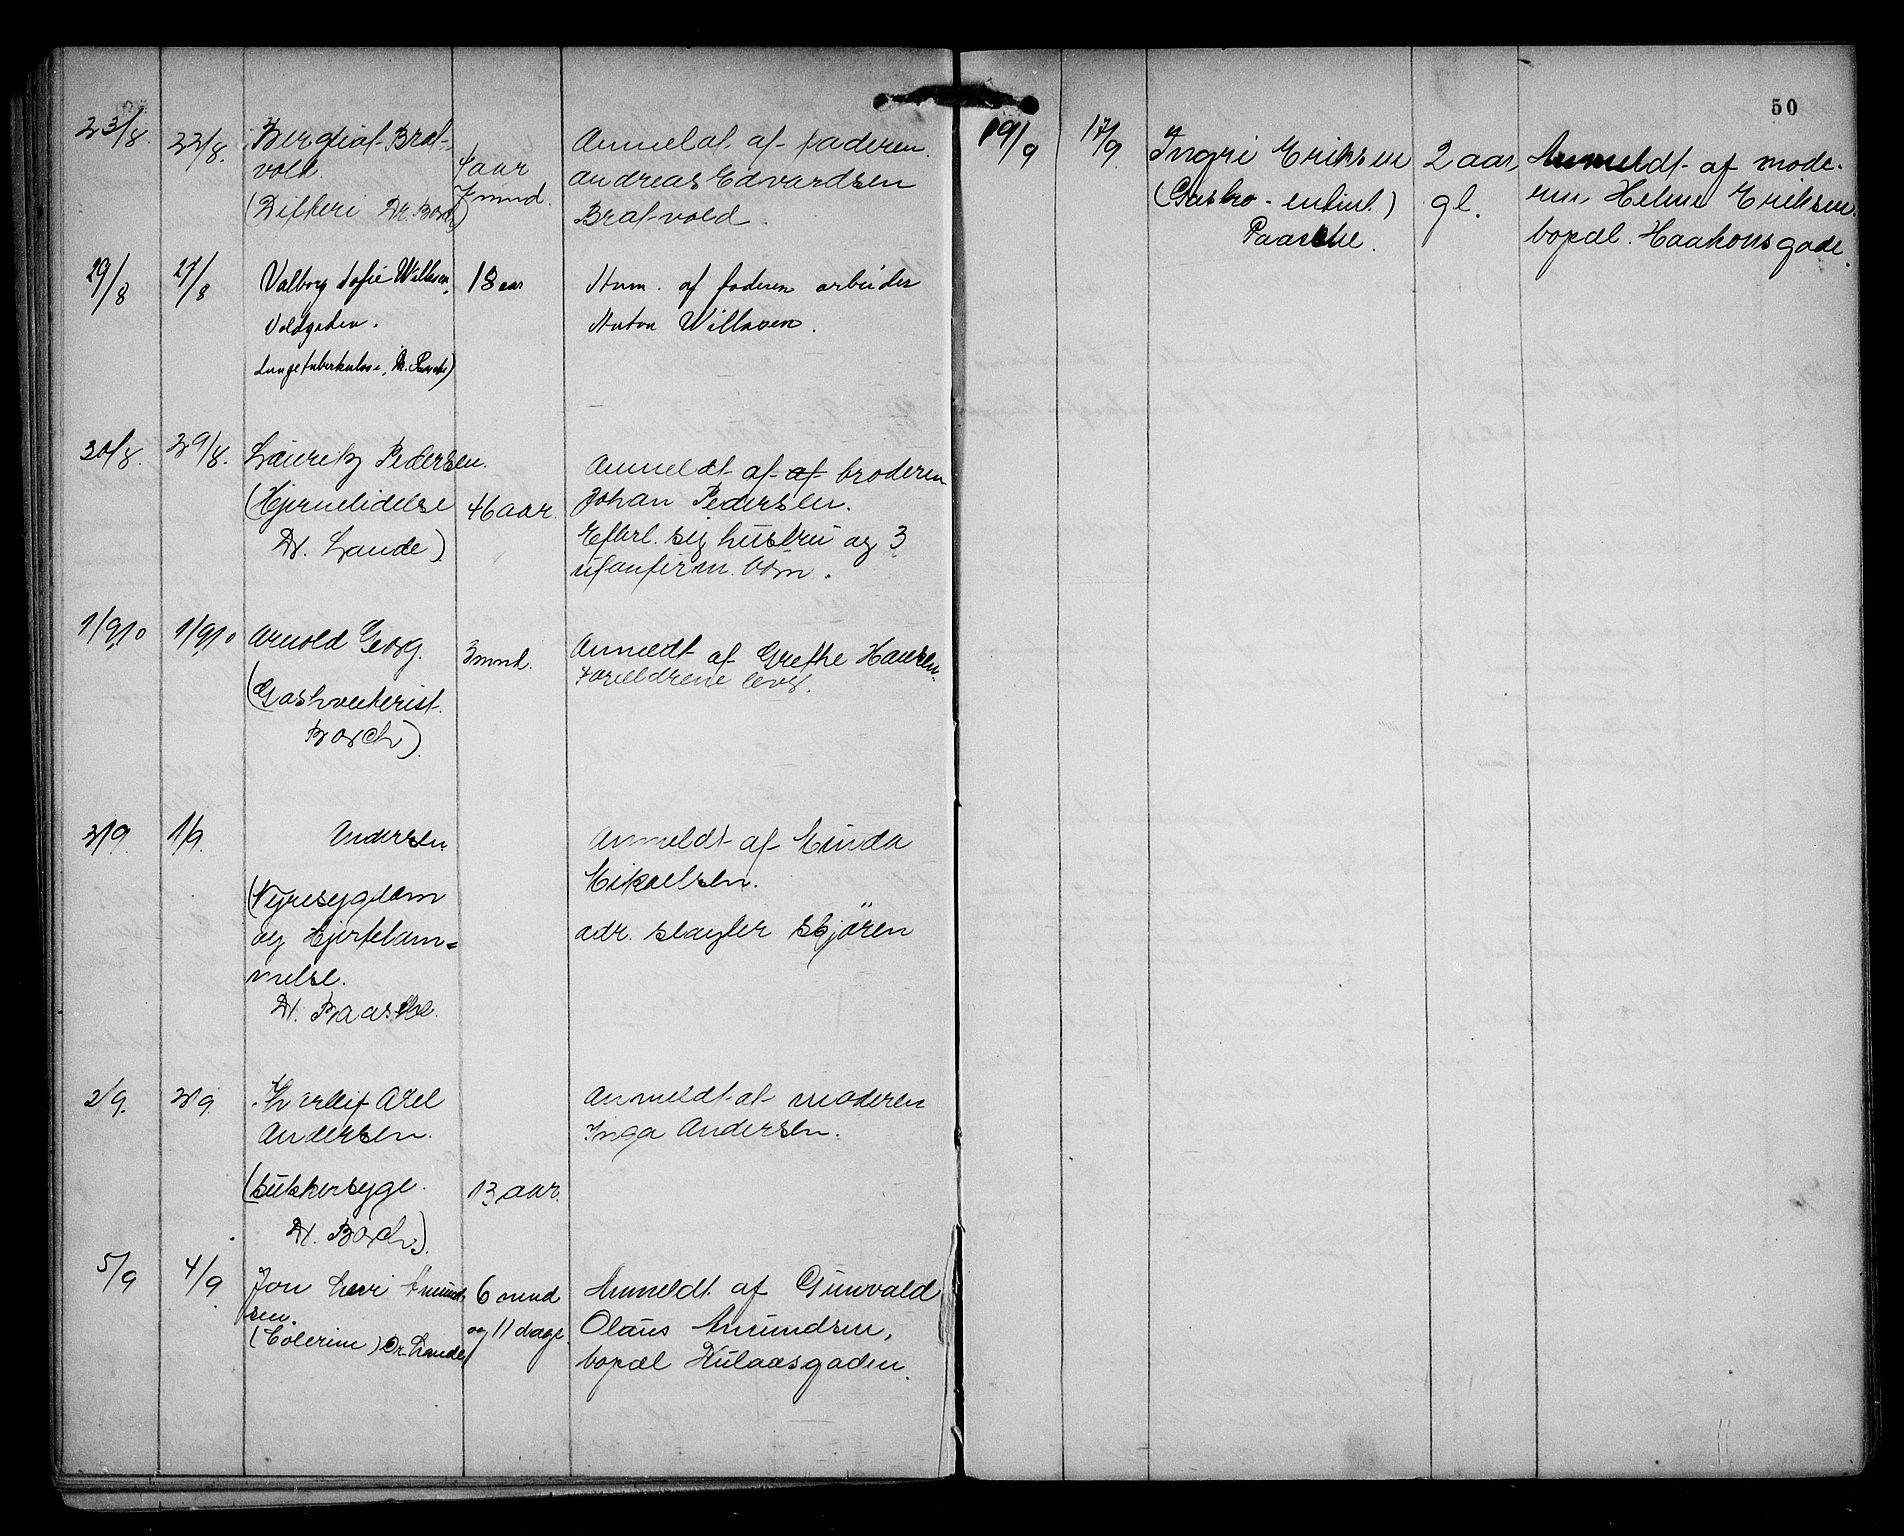 23/8. 22/8. Bergliot Brat-
vold. 4 aar
(Difteri Dr. Borch) 7 mnd.
Anmeldt af faderen
Andreas Edvardsen
Bratvold.
29/8 27/8 Valborg Sofie Willasen, 18 aar
Voldgaden.
Lungetuberkulose, Dr. Paasche)
Anm. af faderen arbeider
Anton Willasen.
30/8. 29/8. Lauritz Pedersen.
(Hjernelidelse 46 aar.
Dr. Lande)
Anmeldt af af broderen
Johan Pedersen.
Efterl. sig hustru og 3
ukonfirm. børn.
1/9 10 1/9 10 Arnold Georg. 3 mnd.
(Gastroenterist.
Borch)
Anmeldt af Grethe Hansen.
Forældrene lever.
3/9. 1/9. Andersen
(Nyresygdom
og Hjertelam-
melse.
Dr. Paasche.
Anmeldt af
Mikaelsen.
adr. slagter Skjøren
2/9. 2/9 Thorleif Axel
Andersen.
(Sukkersyge. 13 aar.
Dr. Borch).
Anmeldt af moderen
Inga Andersen.
5/9 4/9 Jon Levi Amund-
sen.
(Colerine) Dr. Lande
6 mnd
og 11 dage.
Anmeldt af Gunvald
Olaus Amundsen,
bopæl
50
19/9 17/9 Ingri Eriksen
(Gastro-enterit.)
Paasche.
2 aar
gl.
Anmeldt af mode-
ren Helene Eriksen.
bopæl. Haakonsgade.